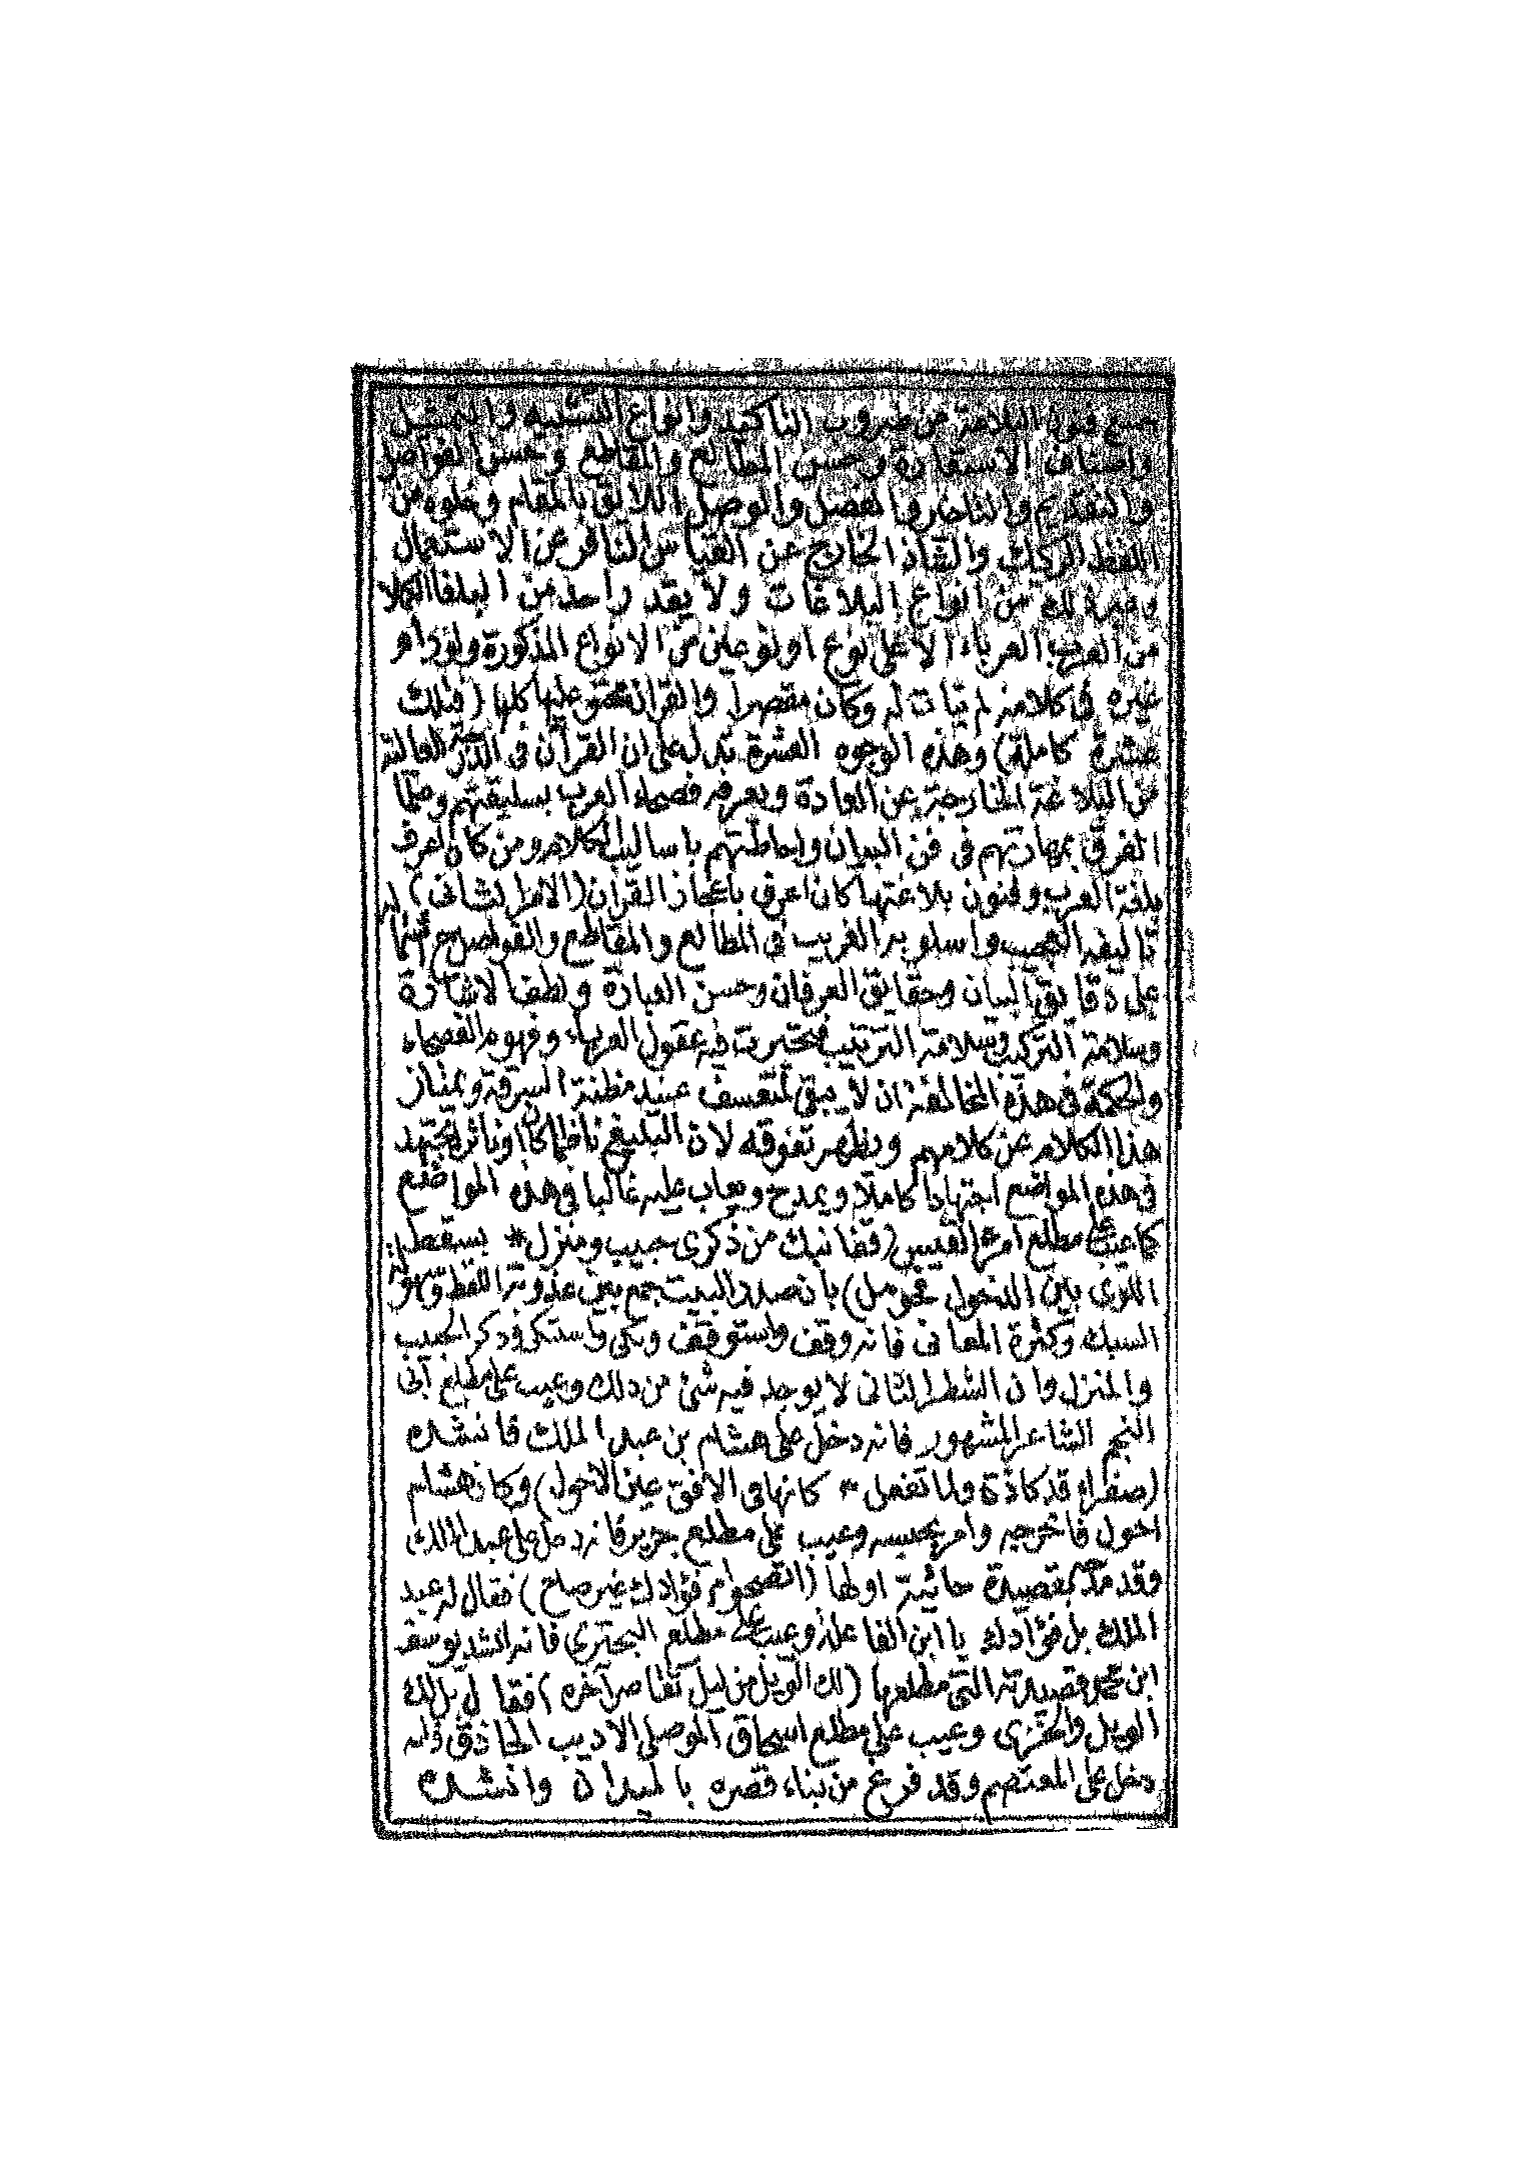 جميع فنون البلاغة من ضروب التاكيد وانواع التشبيه والتمثيل
واصناف الاستعارة وحسن المطالع والمقاطع وحسن الفواصل
والتقديم والتاخير والفصل والوصل اللائق بالمقام وخلوه من
اللفظ الركيك والشاذ الخارج عن القياس النافر عن الاستعمال
وغير ذلك من انواع البلاغات ولا يقدر احد من البلغا الكملا
من العرب العرباء الا على نوع او نوعين من الانواع المذكورة ولو رام
غيره فى كلامه لم يتات له وكان مقصرا والقران محتو عليها كلها (فتلك
عشرة كاملة) وهذه الوجوه العشرة تدل على ان القرآن فى الدرجة العالية
من البلاغة الخارجة عن العادة ويعرفه فصحاء العرب بسليقتهم وعلما
الفرق بمهارتهم فى فن البيان واحاطتهم باساليب الكلام ومن كان اعرف
بلغة العرب وفنون بلاغتها كان اعرف باعجاز القرآن (الامر الثانى)
تاليفه العجيب واسلوبه الغريب فى المطالع والمقاطع والفواصل مع
على دقايق البيان وحقايق العرفان وحسن العبارة ولطف الاشارة
وسلامة التركيب وسلامة الترتيب فتحيرت فيه عقول العرباء وفهوم الفصحاء
والحكمة فى هذه المخالفة ان لا يبقى لمتعسف عنيد مظنة السرقة ويمتاز
هذا الكلام عن كلامهم ويظهر تفوقه لان البليغ ناظما كان او ناثرا يجتهد
فى هذه المواضع اجتهادا كاملا ويمدح ويعاب عليه غالبا فى هذه المواضع
كما عيب على مطلع امرئ القيس (قفا نبك من ذكرى حبيب ومنزل * بسقط
اللوى بين الدخول فحومل) بان صدر البيت جمع بين عذوبة اللفظ وسهولة
السبك وكثرة المعانى فانه وقف واستوقف وبكى واستبكى وذكر الحبيب
والمنزل وان الشطر الثانى لا يوجد فيه شئ من ذلك وعيب على مطلع ابى
النجم الشاعر المشهور فانه دخل على هشام بن عبد الملك فانشده
(صفراء قد كادت ولما تفعل * كانها فى الافق عين الاحول) وكان هشام
احول فاخرجه وامر بحبسه وعيب على مطلع جرير فانه دخل على عبد الملك
وقد مدحه بقصيدة حائية اولها (اتصحو ام فؤادك غير صاح) فقال له عبد
الملك بل فؤادك يا ابن الفاعلة وعيب على مطلع البحترى فانه انشد يوسف
ابن محمد قصيدته التى مطلعها (لك الويل من ليل تقاصر آخره) فقال بل لك
الويل والخزى وعيب على مطلع اسحاق الموصلى الاديب الحاذق فانه
دخل على المعتصم وقد فرغ من بناء قصره بالميدان وانشده